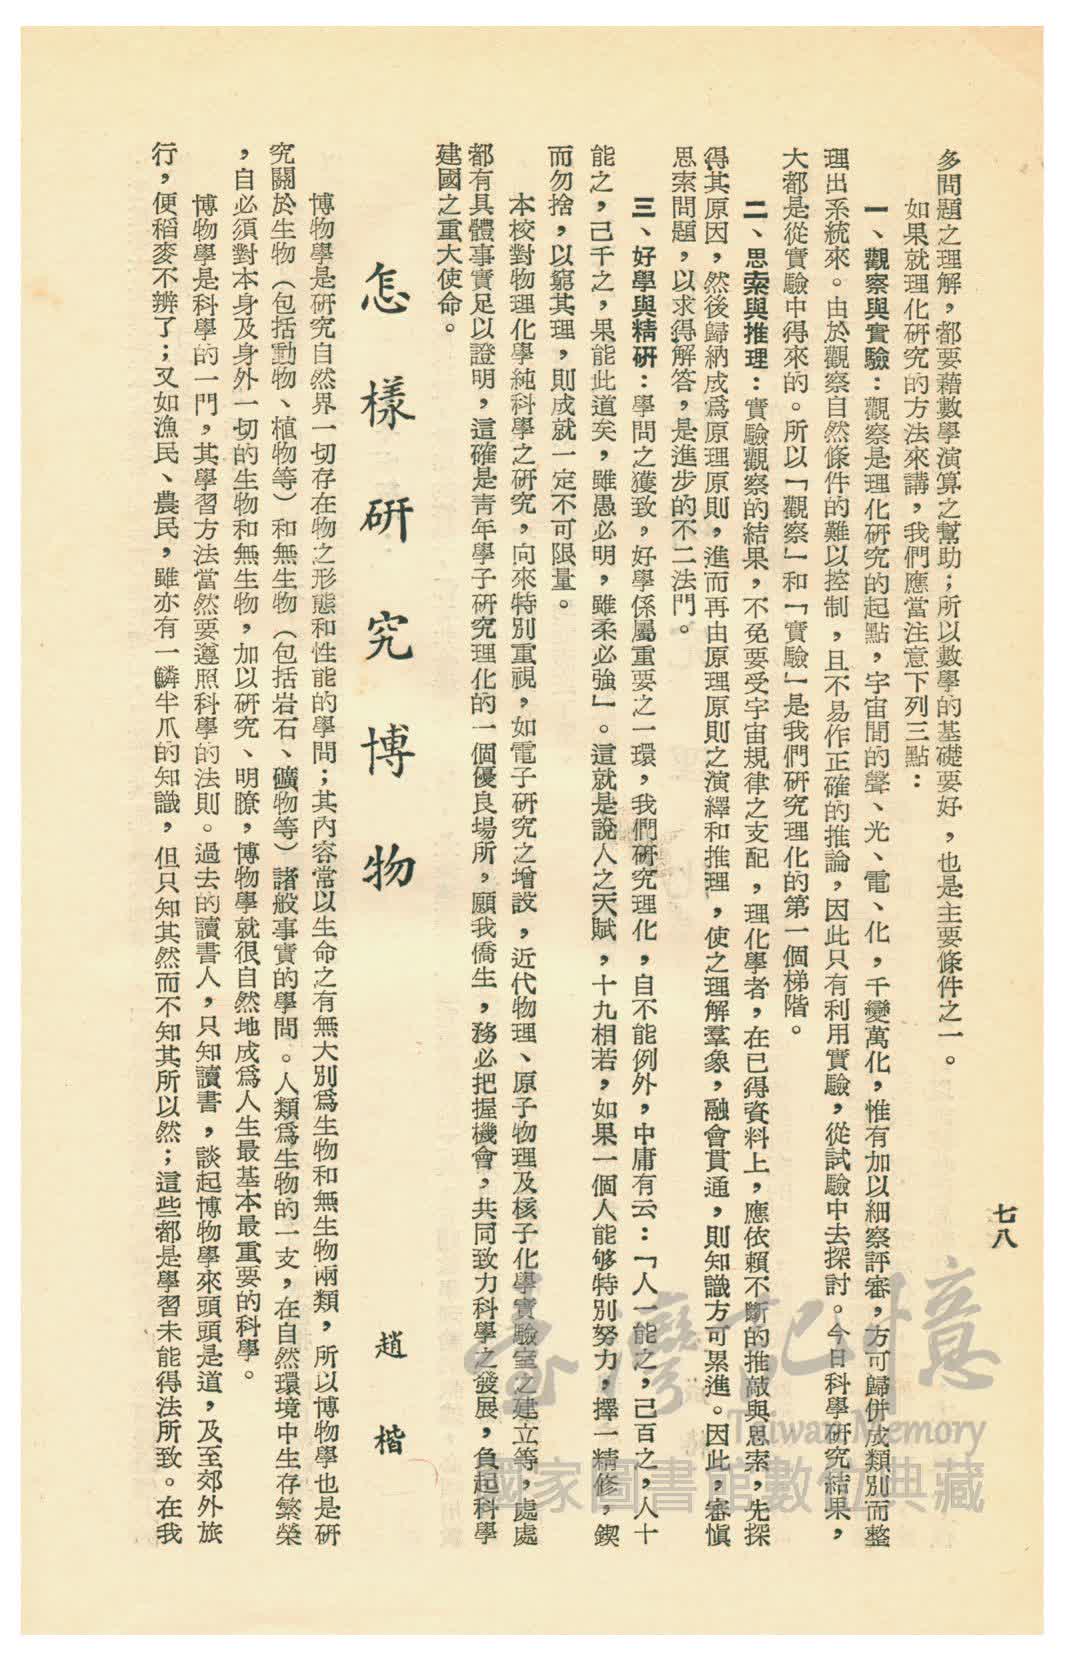 七八
多問題之理解，都要藉數學演算之幫助；所以數學的基礎要好，也是主要條件之一。
如果就理化研究的方法來講，我們應當注意下列三點：
一、觀察與實驗：觀察是理化研究的起點，宇宙間的聲、光、電、化，千變萬化，惟有加以細察評審，方可歸併成類別而整
理出系統來。由於觀察自然條件的難以控制，且不易作正確的推論，因此只有利用實驗，從試驗中去探討。今日科學研究結果，
大都是從實驗中得來的。所以「觀察」和「實驗」是我們研究理化的第一個梯階。
二、思索與推理：實驗觀察的結果，不免要受宇宙規律之支配，理化學者，在已得資料上，應依賴不斷的推敲與思索，先探
得其原因，然後歸納成爲原理原則，進而再由原理原則之演繹和推理，使之理解羣象，融會貫通，則知識方可累進。因此，審愼
思索問題，以求得解答，是進步的不二法門。
三、好學與精研：學問之獲致，好學係屬重要之一環，我們研究理化，自不能例外，中庸有云：「人一能之，己百之，人十
能之，己千之，果能此道矣，雖愚必明，雖柔必強」。這就是說人之天賦，十九相若，如果一個人能够特別努力，擇一精修，鍥
而勿捨，以窮其理，則成就一定不可限量。
本校對物理化學純科學之研究，向來特別重視，如電子研究之增設，近代物理、原子物理及核子化學實驗室之建立等，處處
都有具體事實足以證明，這確是靑年學子研究理化的一個優良場所，願我僑生，務必把握機會，共同致力科學之發展，負起科學
建國之重大使命。
怎樣研究博物
趙楷
博物學是研究自然界一切存在物之形態和性能的學問；其內容常以生命之有無大別爲生物和無生物兩類，所以博物學也是研
究關於生物（包括動物、植物等）和無生物（包括岩石、礦物等）諸般事實的學問。人類爲生物的一支，在自然環境中生存繁榮
，自必須對本身及身外一切的生物和無生物，加以研究、明瞭，博物學就很自然地成爲人生最基本最重要的科學。
博物學是科學的一門，其學習方法當然要遵照科學的法則。過去的讀書人，只知讀書，談起博物學來頭頭是道，及至郊外旅
行，便稻麥不辨了；又如漁民、農民，雖亦有一鱗半爪的知識，但只知其然而不知其所以然；這些都是學習未能得法所致。在我
臺灣記憶
Taiwan Memory
國家圖書館數位典藏